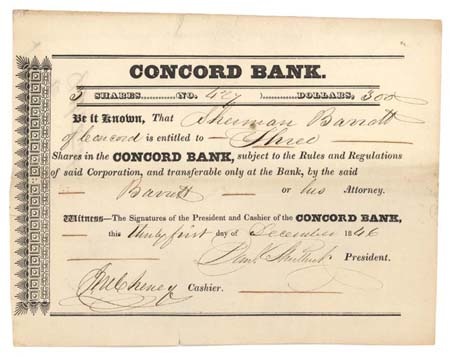 CONCORD BANK.
3 SHARES.......... NO. 427 DOLLARS, 300
Be it Known, That Sherman Barrett
of Concord is entitled to Three
Shares in the CONCORD BANK, subject to the Rules and Regulations
of said Corporation, and transferable only at the Bank, by the said
Barrett or his Attorney.
Witness—The Signatures of the President and Cashier of the CONCORD BANK,
this thirty first day of December 1846
President.
J M Cheney Cashier.